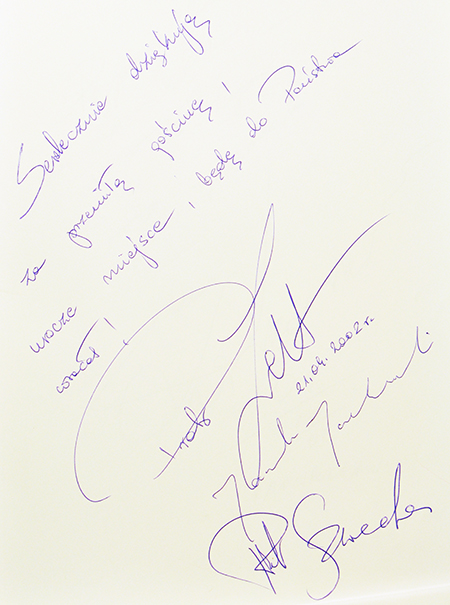 Serdecznie dziękują
za przemiłą gościnę i
urocze miejsce i będę do Państwa
wracał!
21.04.2002 r.